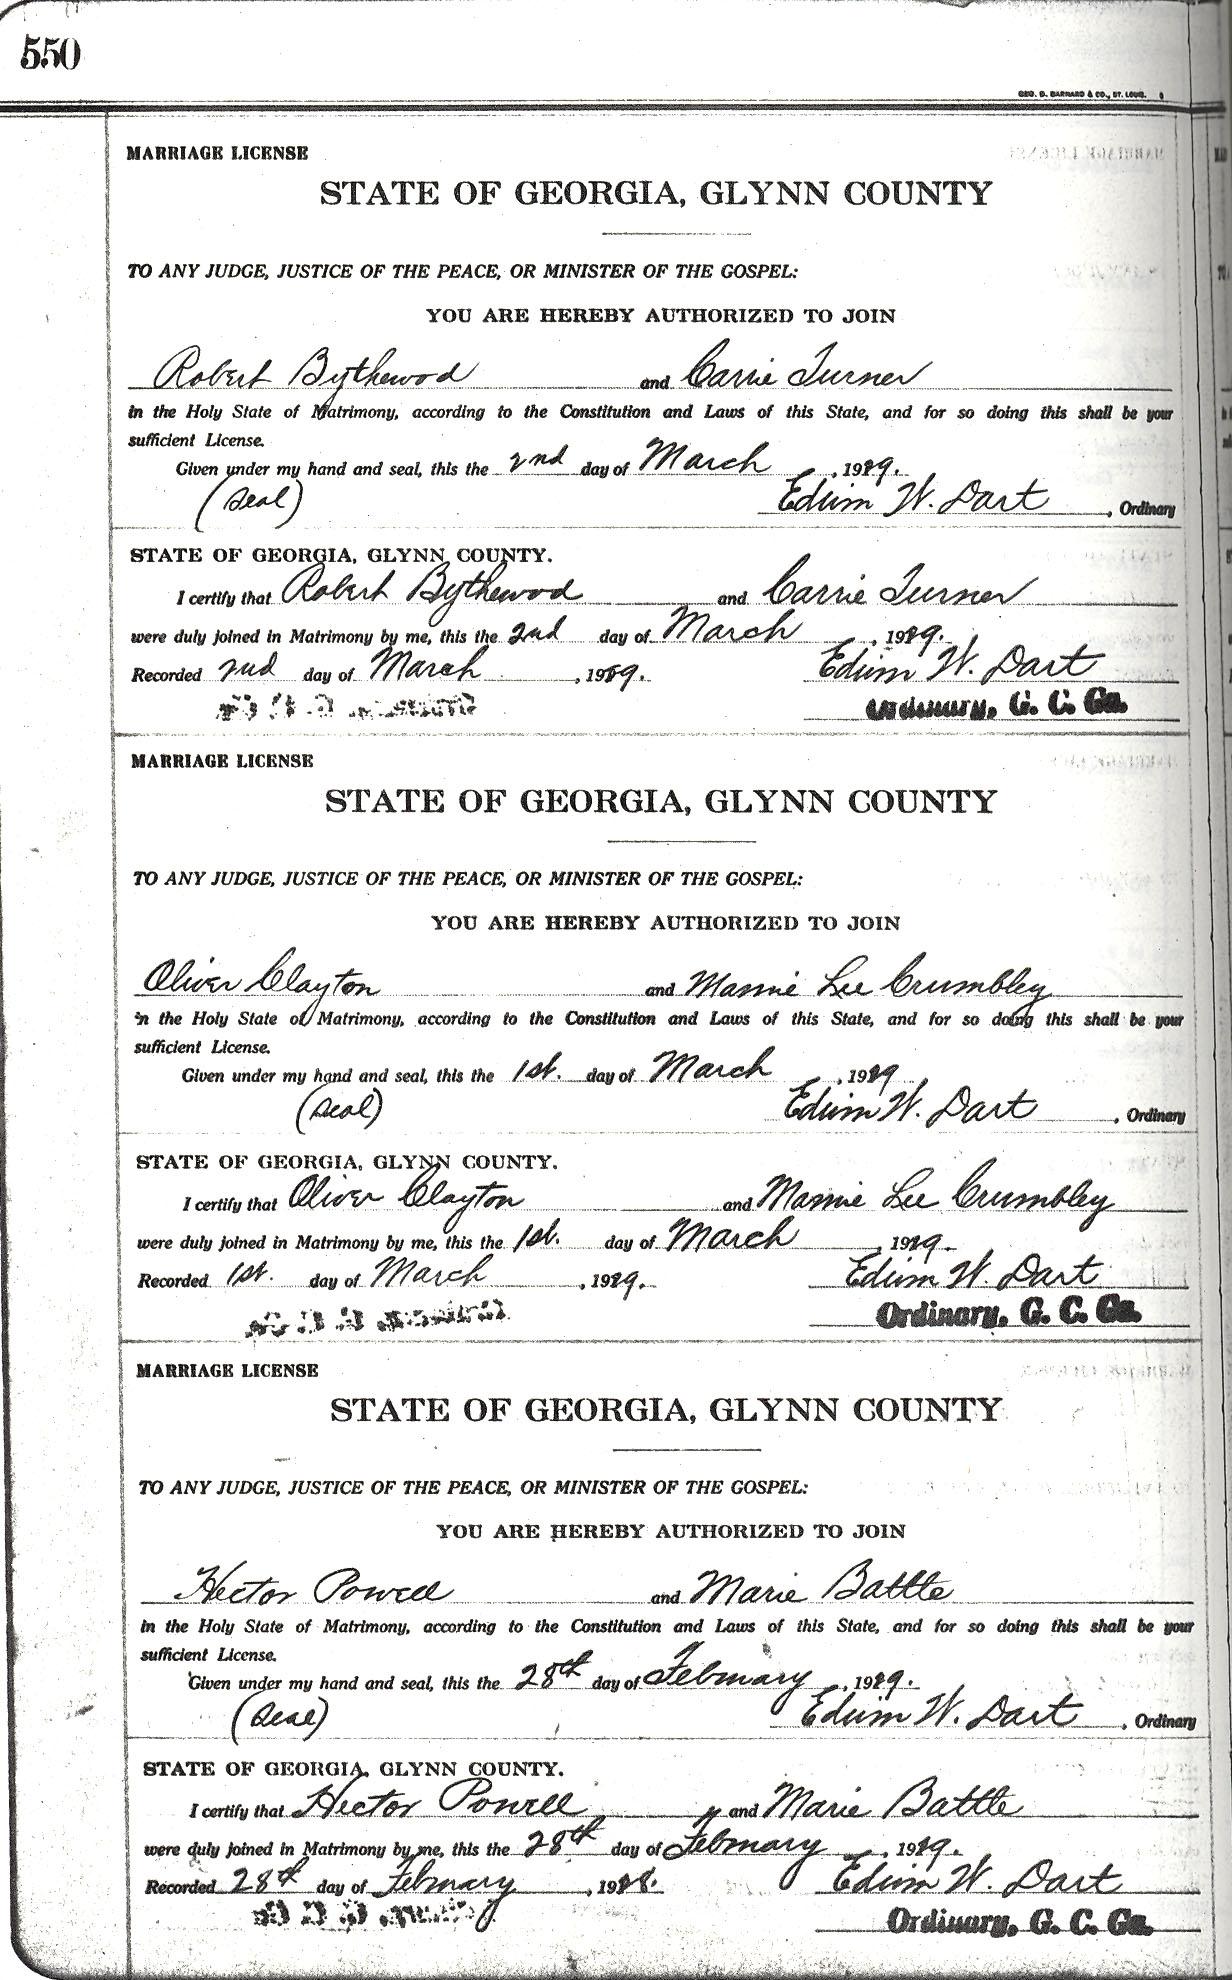 550
GEO. D. BARNARD & CO., ST. LOUIS.
MARRIAGE LICENSE
STATE OF GEORGIA, GLYNN COUNTY
TO ANY JUDGE, JUSTICE OF THE PEACE, OR MINISTER OF THE GOSPEL:
YOU ARE HEREBY AUTHORIZED TO JOIN
Robert Bythewood and Carrie Turner
in the Holy State of Matrimony, according to the Constitution and Laws of this State, and for so doing this shall be your
sufficient License.
Given under my hand and seal, this the 2nd day of March, 1929.
(Seal) Edwin W. Dart, Ordinary
STATE OF GEORGIA, GLYNN COUNTY.
I certify that Robert Bythewood and Carrie Turner
were duly joined in Matrimony by me, this the 2nd day of March, 1929.
Recorded 2nd day of March, 1929. Edwin W. Dart
Ordinary, G. C. Ga.
MARRIAGE LICENSE
STATE OF GEORGIA, GLYNN COUNTY
TO ANY JUDGE, JUSTICE OF THE PEACE, OR MINISTER OF THE GOSPEL:
YOU ARE HEREBY AUTHORIZED TO JOIN
Oliver Clayton and Mamie Lee Crumbley
in the Holy State of Matrimony, according to the Constitution and Laws of this State, and for so doing this shall be your
sufficient License.
Given under my hand and seal, this the 1st. day of March, 1929
(Seal) Edwin W. Dart, Ordinary
STATE OF GEORGIA, GLYNN COUNTY.
I certify that Oliver Clayton and Mamie Lee Crumbley
were duly joined in Matrimony by me, this the 1st. day of March, 1929.
Recorded 1st. day of March, 1929. Edwin W. Dart
Ordinary, G. C. Ga.
MARRIAGE LICENSE
STATE OF GEORGIA, GLYNN COUNTY
TO ANY JUDGE, JUSTICE OF THE PEACE, OR MINISTER OF THE GOSPEL:
YOU ARE HEREBY AUTHORIZED TO JOIN
Hector Powell and Marie Battle
in the Holy State of Matrimony, according to the Constitution and Laws of this State, and for so doing this shall be your
sufficient License.
Given under my hand and seal, this the 28th day of February, 1929.
(Seal) Edwin W. Dart, Ordinary
STATE OF GEORGIA, GLYNN COUNTY.
I certify that Hector Powell and Marie Battle
were duly joined in Matrimony by me, this the 28th day of February, 1929.
Recorded 28th day of February, 1928. Edwin W. Dart
Ordinary, G. C. Ga.